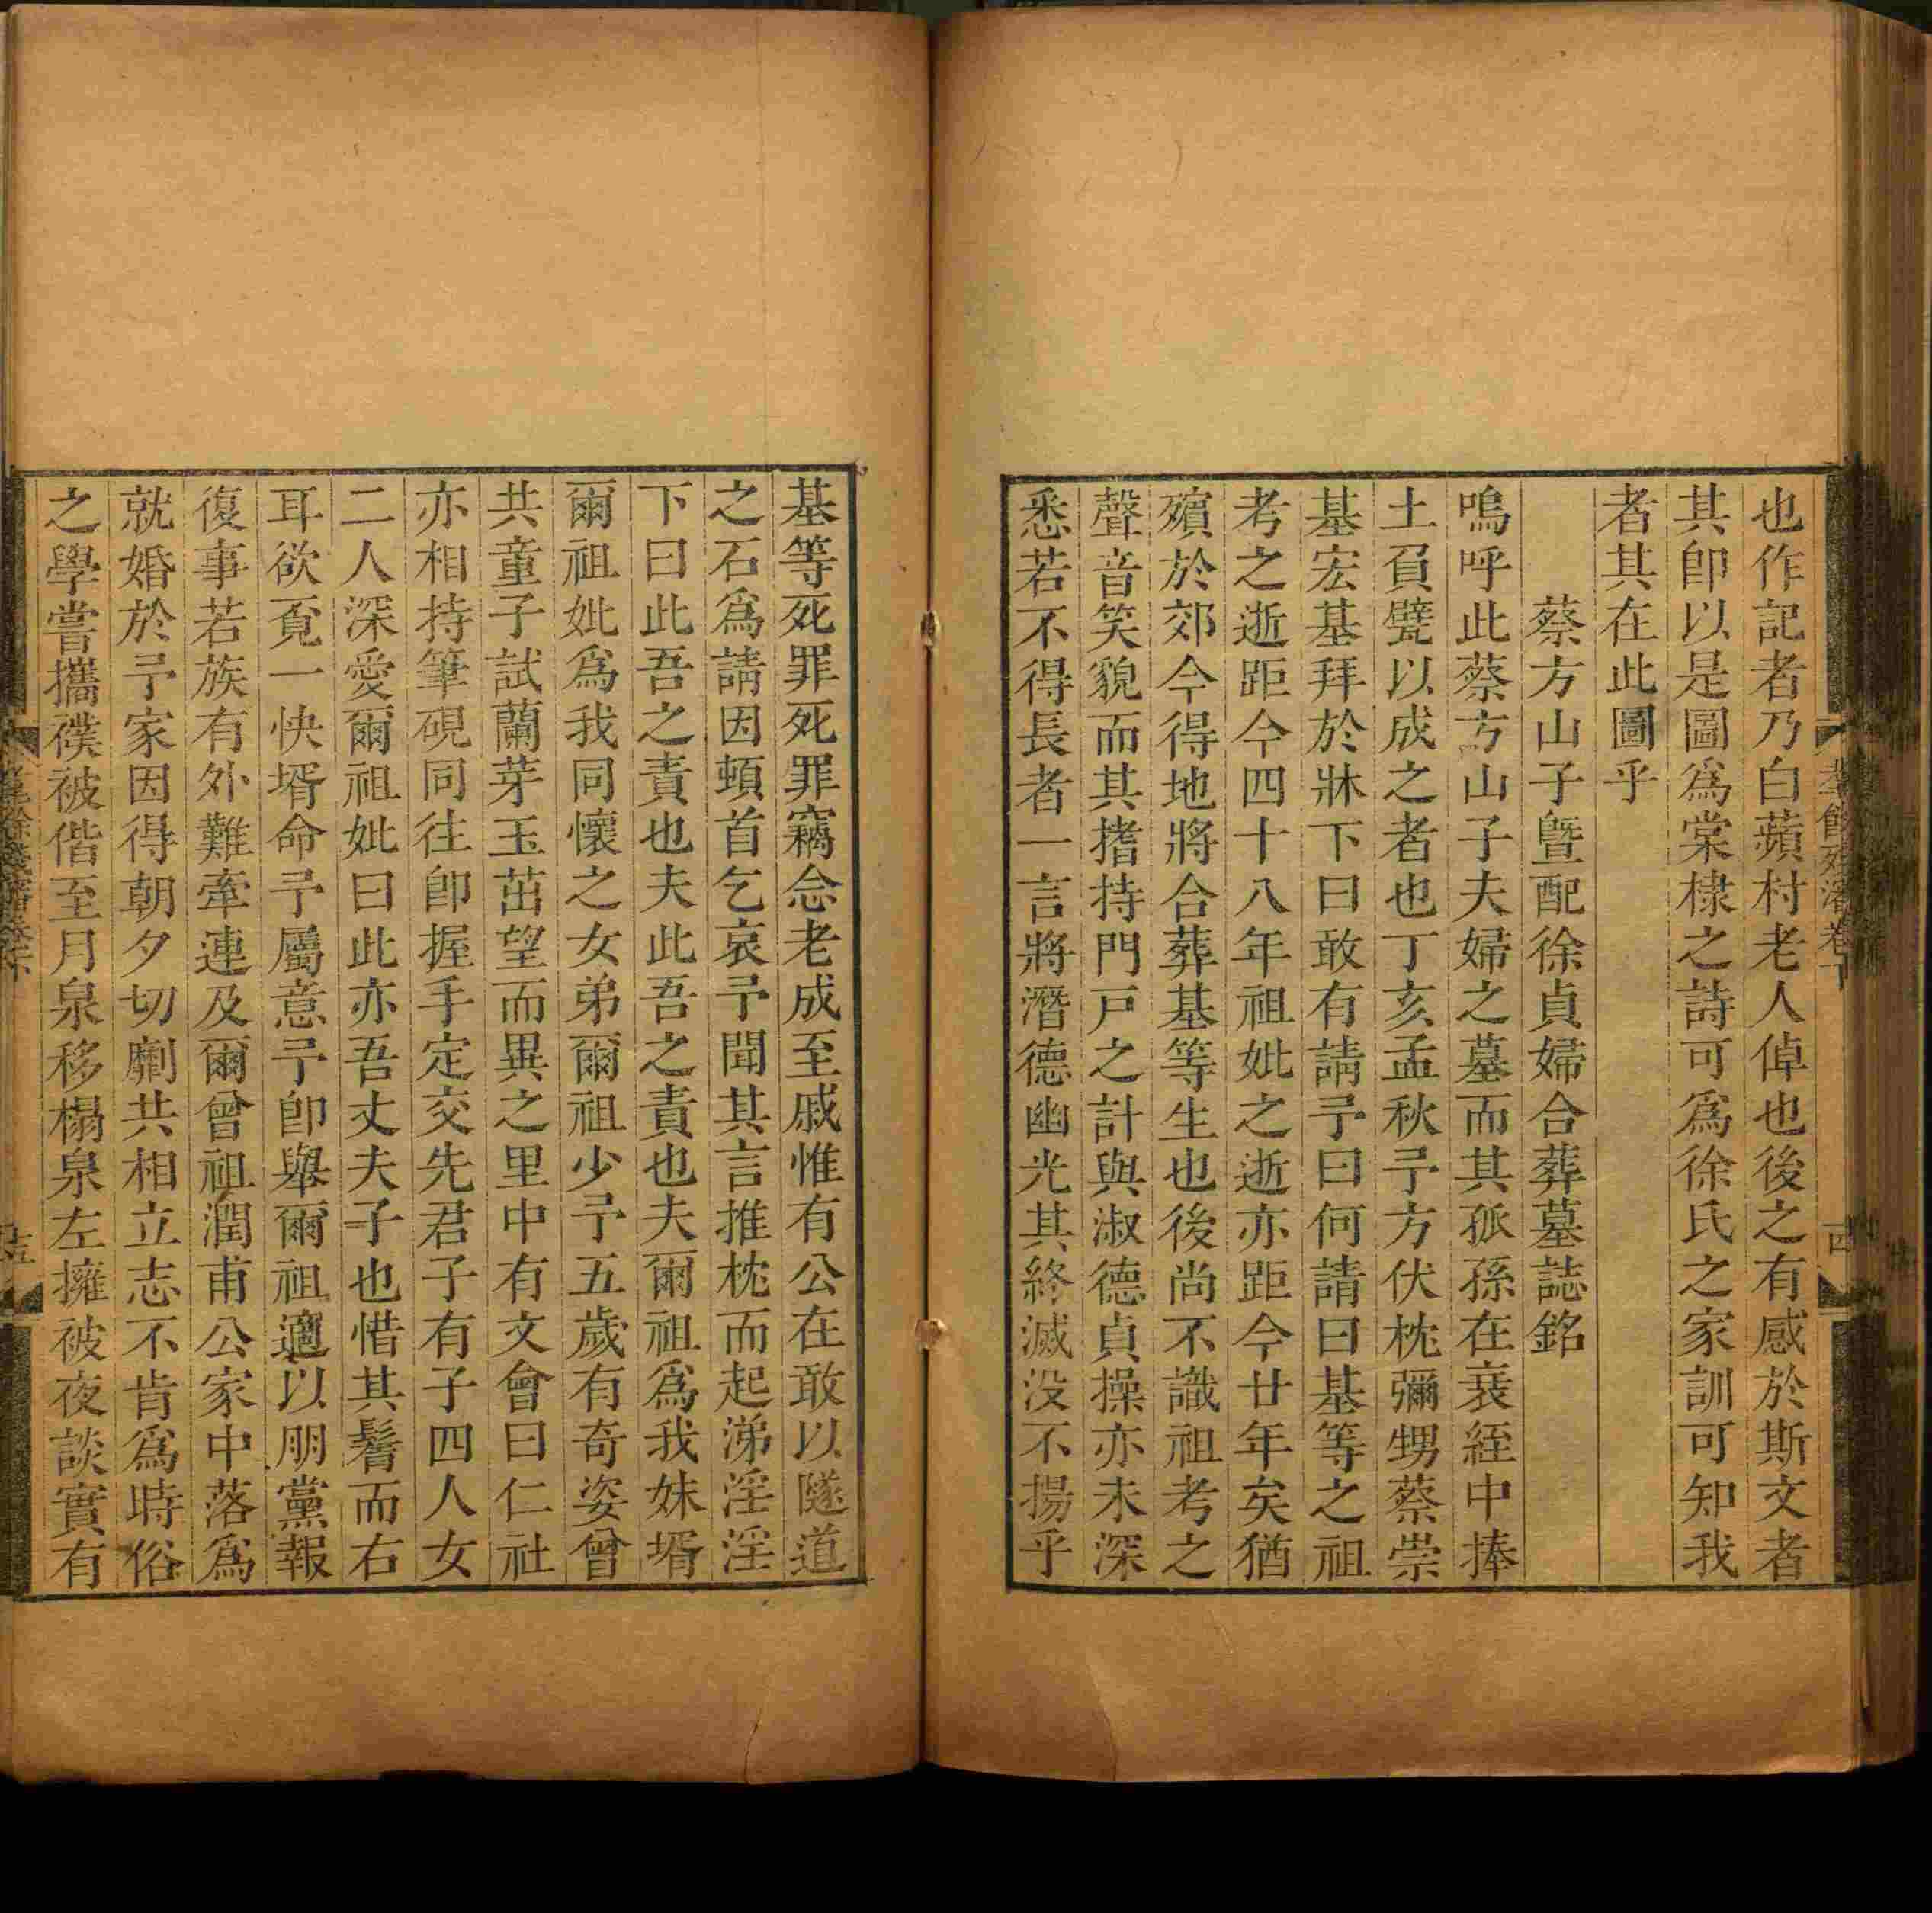 也作記者乃白蘋村老人倬也後之有感於斯文者
其卽以是圖爲棠棣之詩可爲徐氏之家訓可知我
者其在此圖乎
蔡方山子曁配徐貞婦合葬墓誌銘
嗚呼此蔡方山子夫婦之墓而其孤孫在衰絰中捧
土負甓以成之者也丁亥孟秋予方伏枕彌甥蔡崇
基宏基拜於牀下曰敢有請予曰何請曰基等之祖
考之逝距今四十八年祖妣之逝亦距今廿年矣猶
殯於郊今得地將合葬基等生也後尚不識祖考之
聲音笑貌而其搘持門戸之計與淑德貞操亦未深
悉若不得長者一言將潛德幽光其終滅没不揚乎
基等死罪死罪竊念老成至戚惟有公在敢以隧道
之石爲請因頓首乞哀予聞其言推枕而起涕淫淫
下曰此吾之責也夫此吾之責也夫爾祖爲我妹壻
爾祖妣爲我同懷之女弟爾祖少予五歲有奇姿曾
共童子試蘭芽玉茁望而異之里中有文會曰仁社
亦相持筆硯同往卽握手定交先君子有子四人女
二人深愛爾祖妣曰此亦吾丈夫子也惜其鬌而右
耳欲覓一快壻命予屬意予卽舉爾祖適以朋黨報
復事若族有外難牽連及爾曾祖潤甫公家中落爲
就婚於予家因得朝夕切劘共相立志不肯爲時俗
之學嘗攜襆被偕至月泉移榻泉左擁被夜談實有